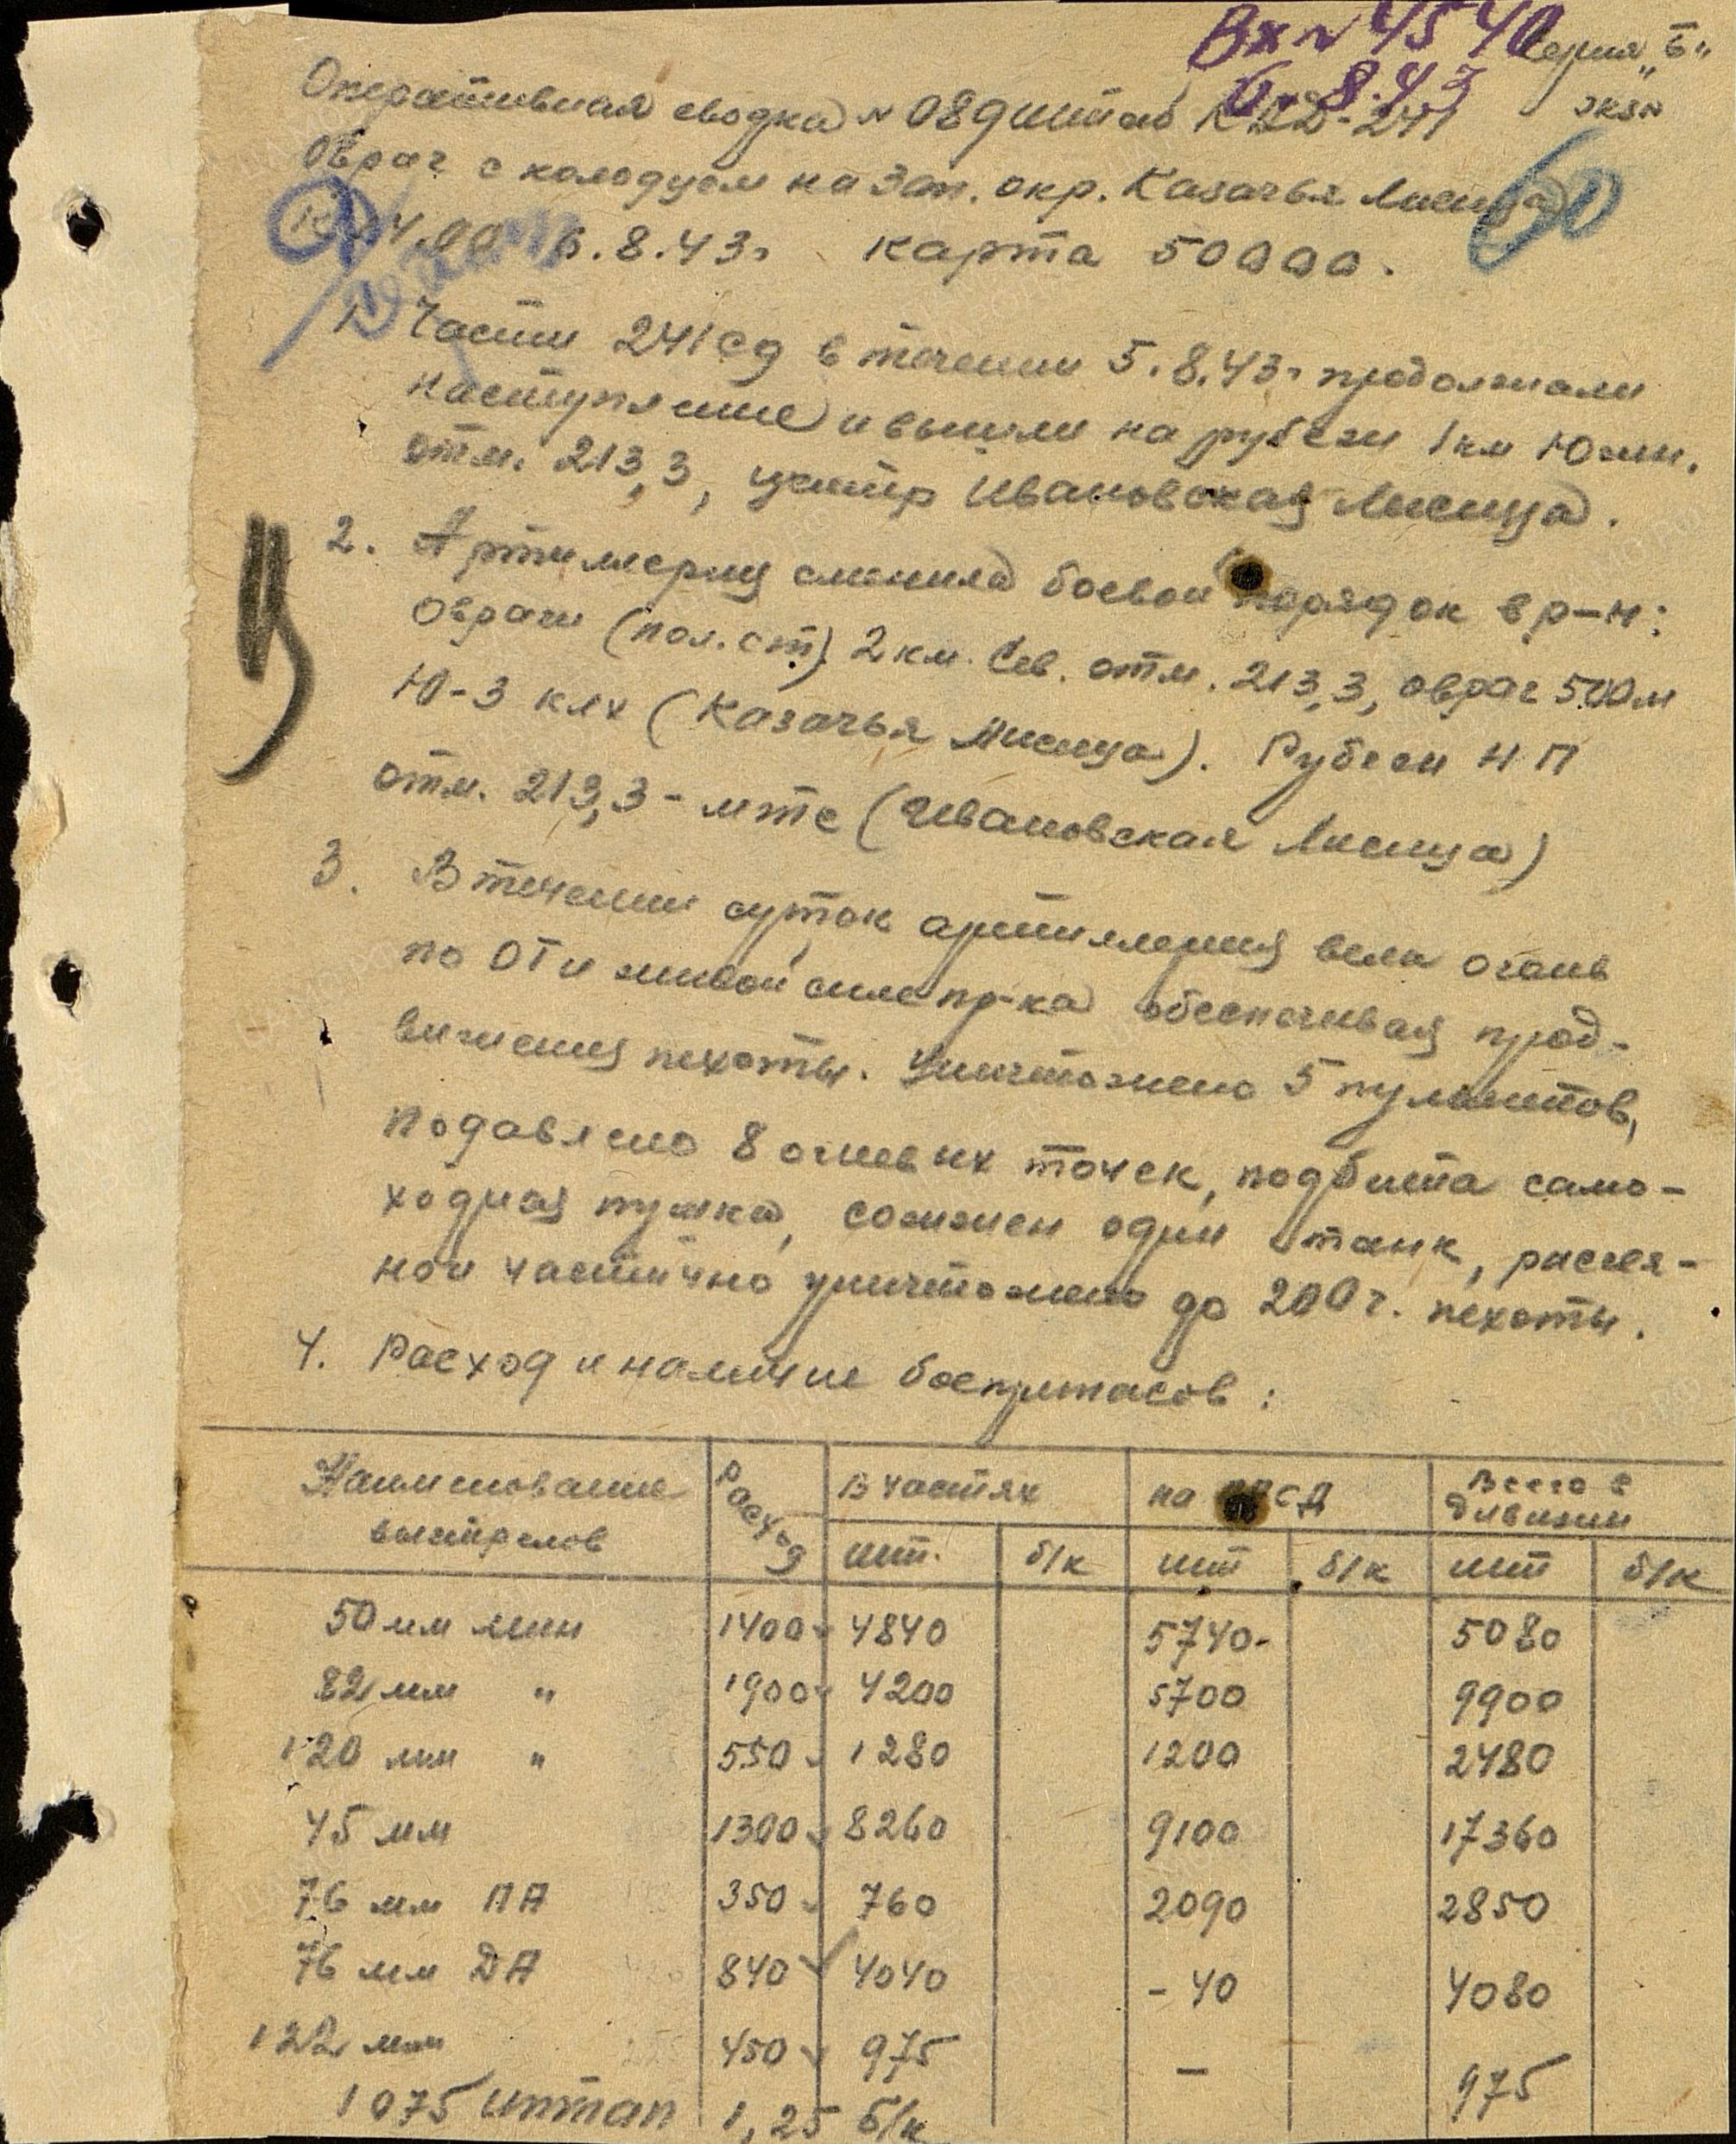 Вх № 4540
6.8.43
Серия „Б"
экз №
Оперативная сводка № 089 штаб КАД-241
Овраг с колодцем на зап. окр. Казачья Лисица
К 4.00 6.8.43г карта 50000.
1. Части 241 сд в течении 5.8.43г продолжали
наступление и вышли на рубежи 1 км Южн.
отм. 213,3, центр Ивановская Лисица.
2. Артиллерия сменила боевой порядок в р-н:
Овраги (пол.ст) 2 км. Сев. отм. 213,3, овраг 500 м
Ю-З клх (Казачья Лисица). Рубежи НП
отм. 213,3 - мтс (Ивановская Лисица)
3. В течении суток артиллерия вела огонь
по ОТ и живой силе пр-ка обеспечивая прод-
вижения пехоты. Уничтожено 5 пулеметов,
подавлено 8 огневых точек, подбита само-
ходная пушка, сожжен один танк, рассея-
но и частично уничтожено до 200 ч. пехоты.
4. Расход и наличие боеприпасов:
Наименование выстрелов Расход В частях на СД Всего в дивизии
шт. б/к шт б/к шт б/к
50 мм мин 1400 4840 5740 5080
82 мм " 1900 4200 5700 9900
120 мм " 550 1280 1200 2480
45 мм 1300 8260 9100 17360
76 мм ПА 350 760 2090 2850
76 мм ДА 840 4040 - 40 4080
122 мм 450 975 - 975
1075 иптап 1,25 б/к